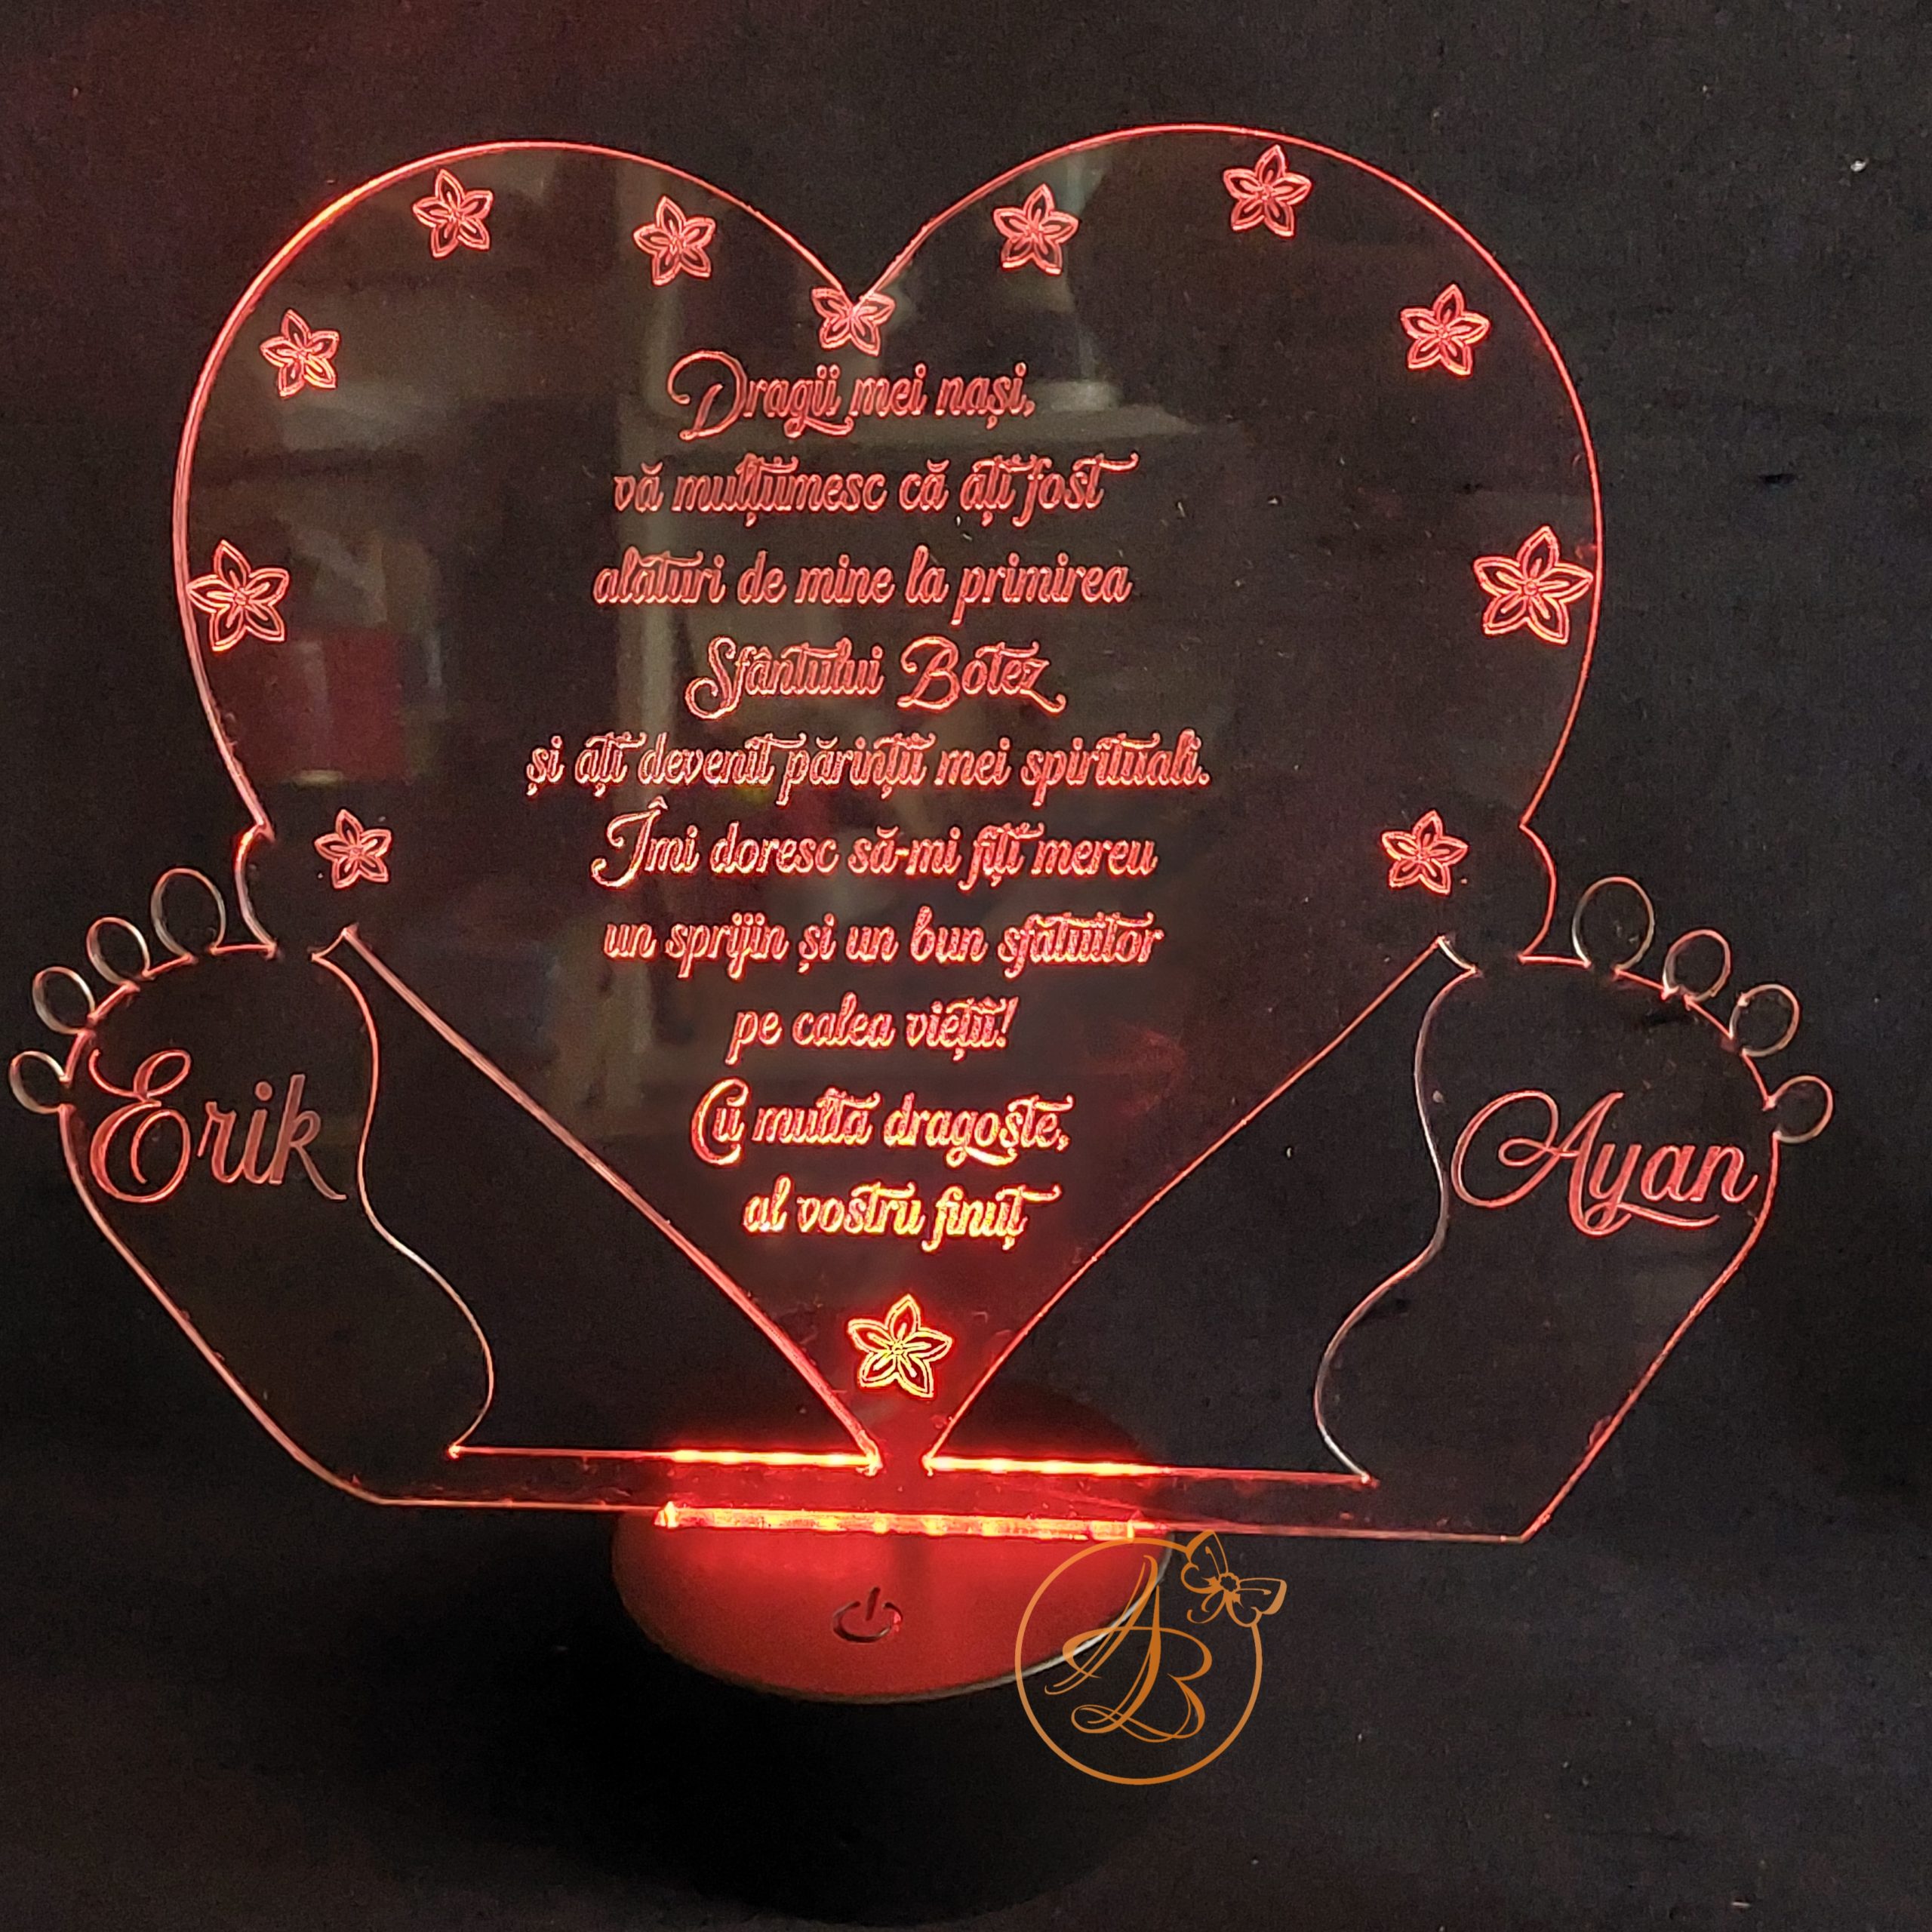 Dragii mei nași,
vă mulțumesc că ați fost
alături de mine la primirea
Sfântului Botez
și ați devenit părinții mei spirituali.
Îmi doresc să-mi fiți mereu
un sprijin și un bun sfătuitor
pe calea vieții!
Cu multă dragoste,
al vostru finuț
Erik
Ayan
AB